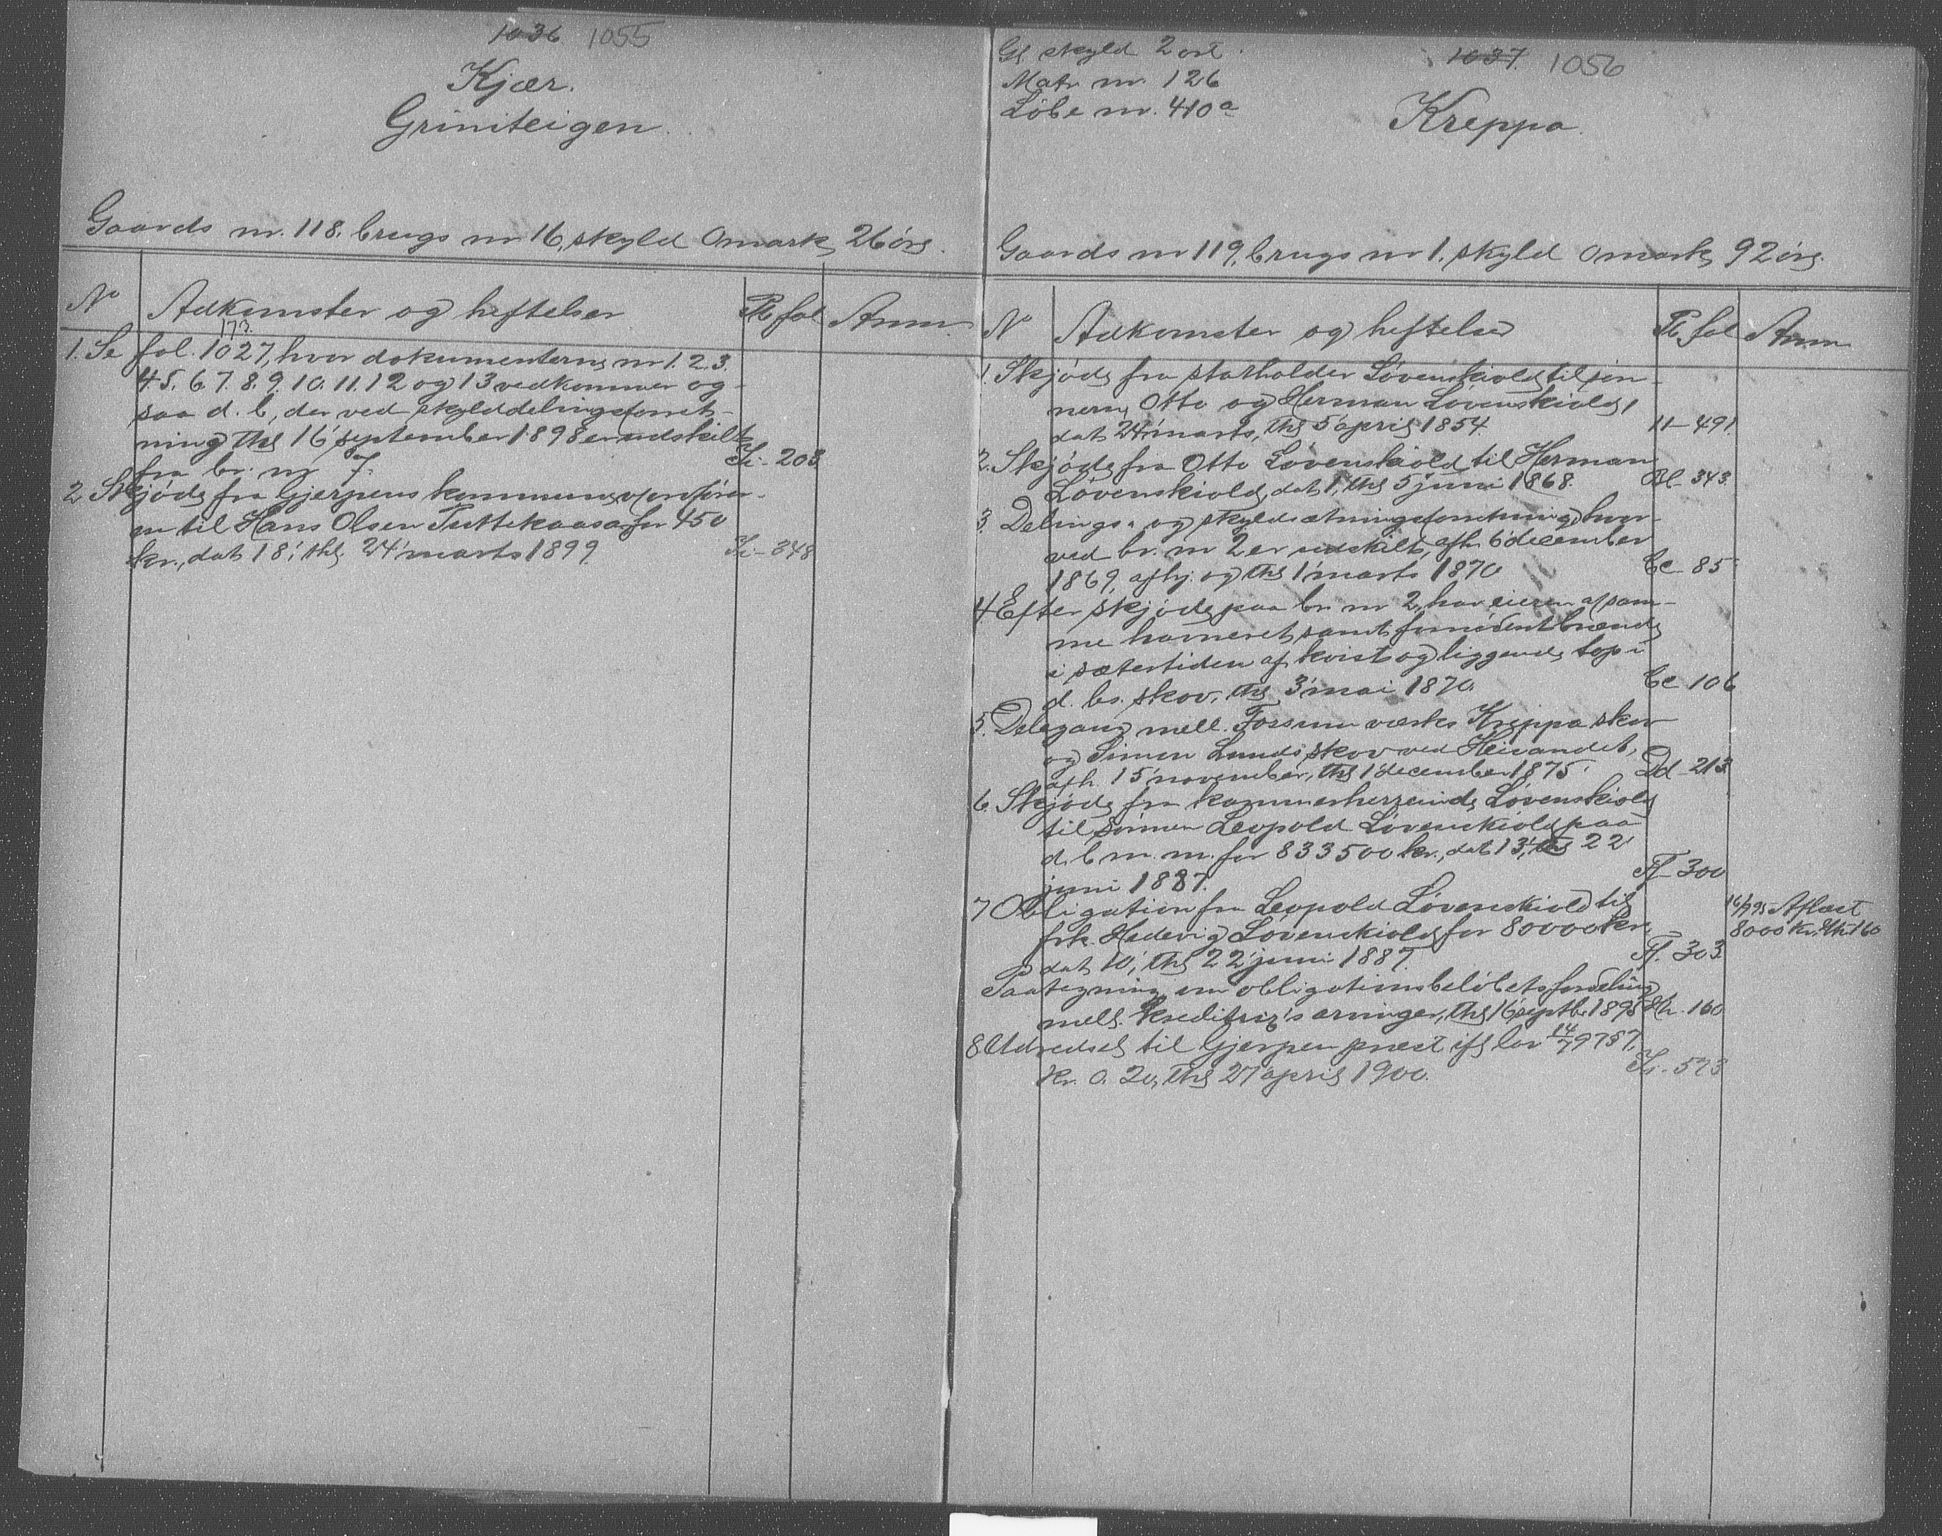 1036 1055
Kjær.
Griniteigen.
Gaards nr. 118, brugs nr 16, skyld 0 mark 26 øre.
No Adkomster og heftelser Pr. fol Anm
1. Se fol. 1027, hvor dokumenterne nr 1. 2. 3.
4. 5. 6. 7. 8. 9. 10. 11. 12 og 13 vedkommer og-
saa d. b., der ved skylddelingsforret-
ning thl 16' september 1898 er udskilt
fra br. nr 7. 203
2 Skjøde fra Gjerpens kommunes
til Hans Olsen for 450
kr., dat 18', thl. 24' marts 1899. 348
1037. 1056
Gl skyld 2 ort
Matr nr. 126
Løbe nr. 410a
Kreppa
Gaards nr 119, brugs nr 1, skyld 0 mark 92 øre.
No Adkomster og heftelser Pr. fol Anm
1. Skjøde fra statholder Løvenskiold til søn-
nerne Otto og Herman Løvenskiold,
dat 24' marts, thl 5' april 1854. 11-491.
2. Skjøde fra Otto Løvenskiold til Herman
Løvenskiold, dat 1', thl 5 juni 1868. Bb. 343.
3. Delings- og skyldsætningsforretning, hvor-
ved br. nr 2 er udskilt, afh. 6' december
1869, afhj. og thl 1' marts 1870 Cc 85
4 Efter skjøde paa br. nr 2 har eieren af sam-
me havneret samt fornødent brænde
i sætertiden af kvist og liggende top i
d. bs. skov, thl 3' mai 1870. Cc 106
5. Delegang mell. Fossum værks Kreppa skov
og Simen Lunds skov ved Heivandet,
afh. 15' november, thl 1' december 1875. Dd-213
6. Skjøde fra kammerherreinde Løvenskiold
til sønnen Leopold Løvenskiold paa
d. b m. m. for 833500 kr., dat 13', thl 22'
juni 1887. Ff-300
7 Obligation fra Leopold Løvenskiold til
frk. Hedevig Løvenskiold for 80000 kr,
dat 10', thl 22' juni 1887. Ff. 303.
16/9 95 Aflæst
8000 kr. Hh 160
Paategning om obligationsbeløbets fordeling
mell. kreditrix's arvinger, thl 16' septbr 1895 Hh. 160
8 Udredsel til Gjerpen præst ifl lov 14/7 9 787,
kr. 0. 20, thl 27' april 1900. 573